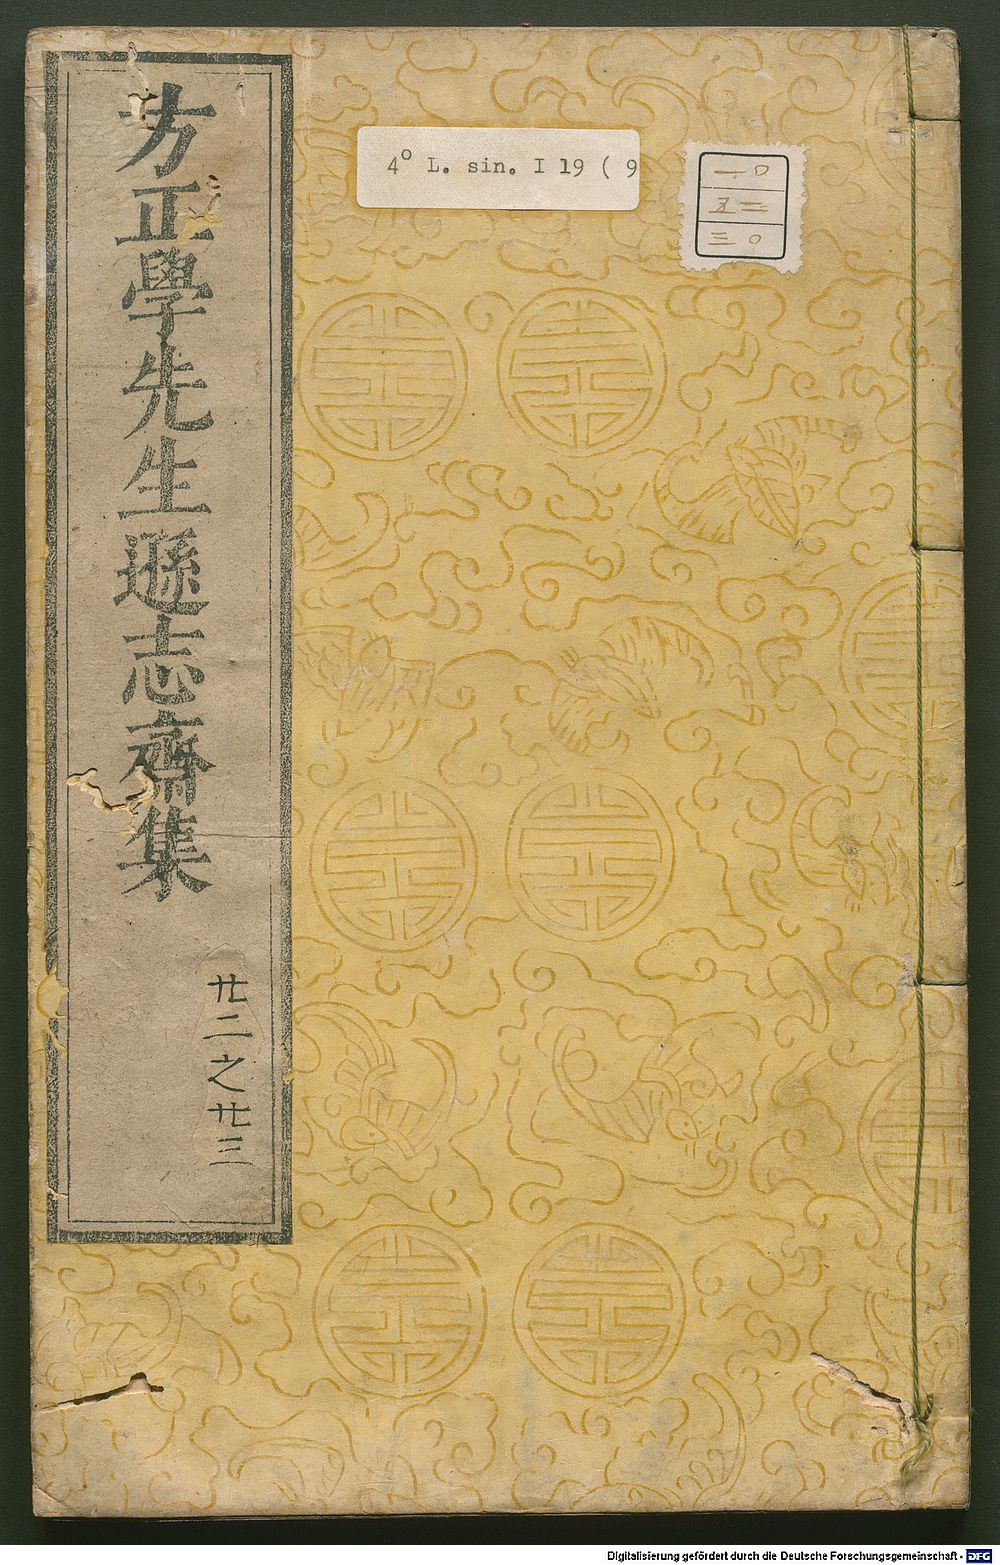 方正學先生遜志齋集
廿二之廿三
4° L. sin. I 19 ( 9
一〇
五二
三〇
Digitalisierung gefördert durch die Deutsche Forschungsgemeinschaft - DFG